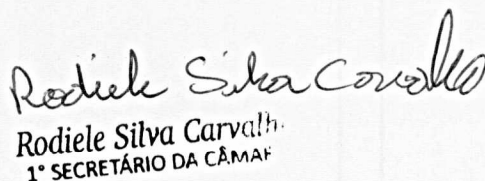 Rodiele Silva Carvalho
Rodiele Silva Carvalh
1° SECRETÁRIO DA CÂMAR